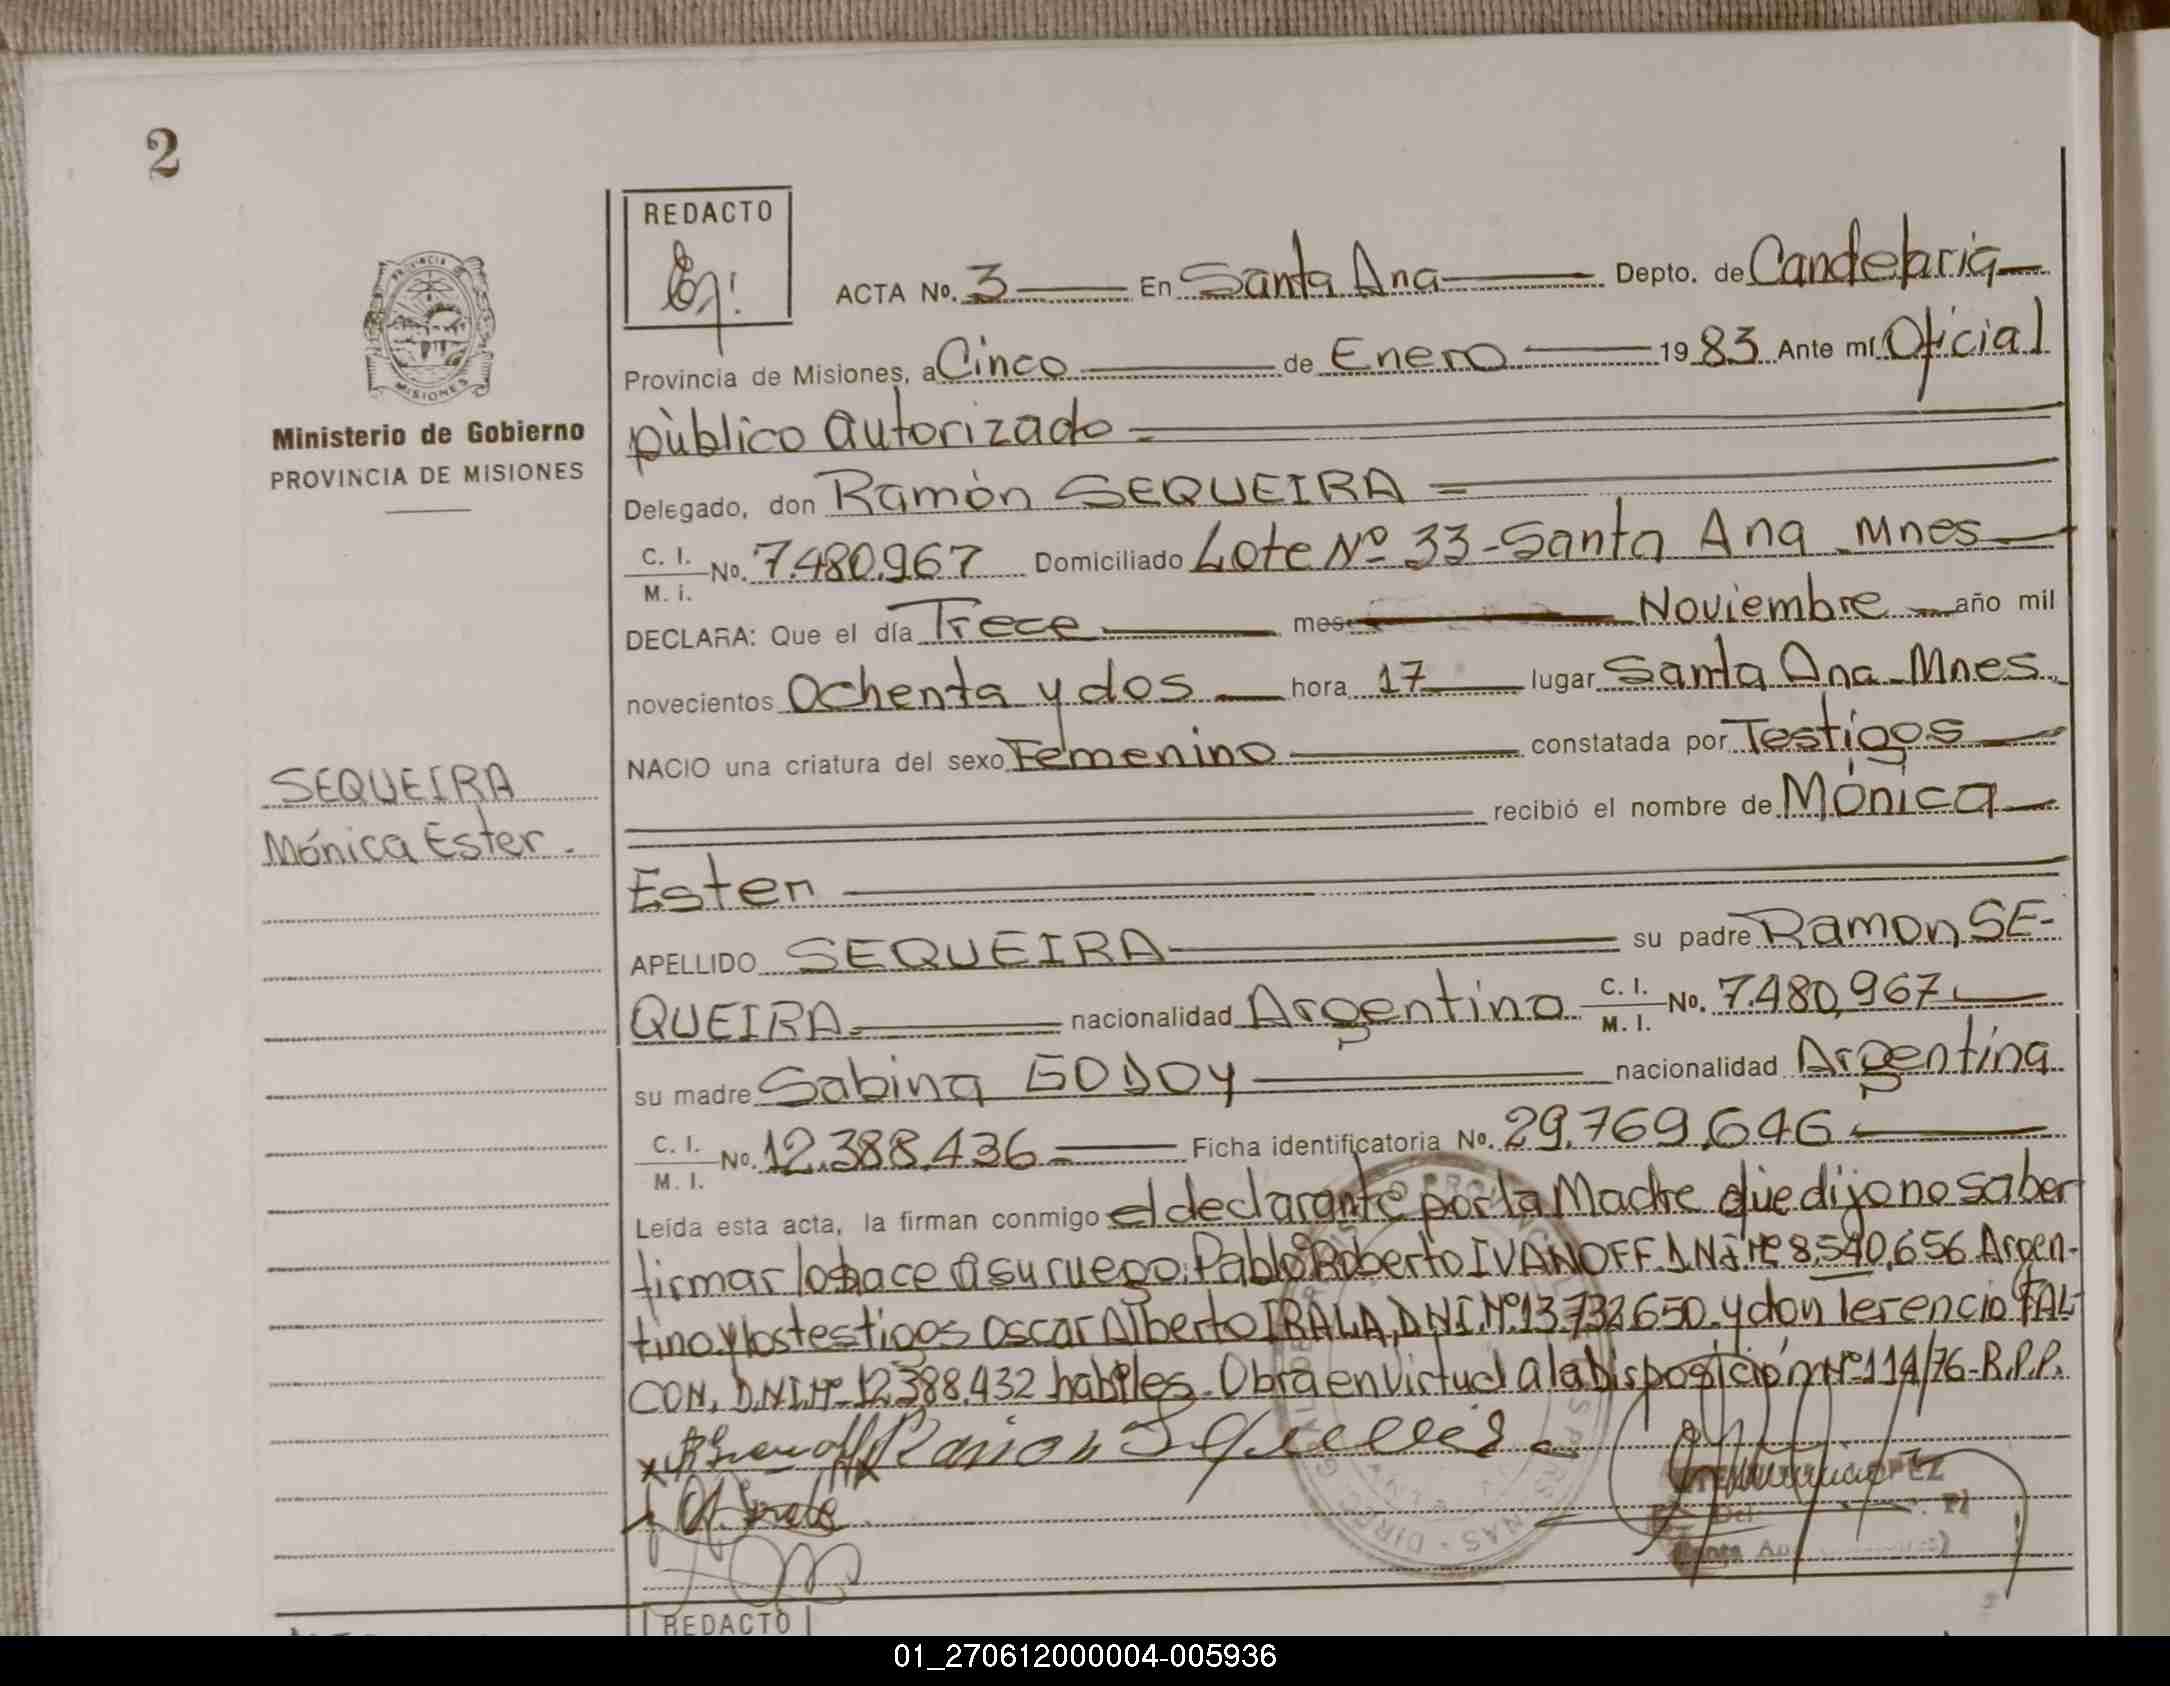 2
REDACTO
PROVINCIA DE
MISIONES
Ministerio de Gobierno
PROVINCIA DE MISIONES
SEQUEIRA
Mónica Ester.
ACTA No. 3 En Santa Ana Depto. de Candelaria
Provincia de Misiones, a Cinco de Enero 1983 Ante mí Oficial
pùblico autorizado
Delegado, don Ramòn SEQUEIRA
C. I. M. I. No. 7.480.967 Domiciliado Lote Nº 33-Santa Ana Mnes
DECLARA: Que el día Trece mes Noviembre año mil
novecientos Ochenta y dos hora 17 lugar Santa Ana-Mnes.
NACIO una criatura del sexo Femenino constatada por Testigos
recibió el nombre de Mónica
Ester
APELLIDO SEQUEIRA su padre Ramon SE-
QUEIRA nacionalidad Argentino C. I. M. I. No. 7.480,967
su madre Sabina GODOY nacionalidad Argentina
C. I. M. I. No. 12.388.436 Ficha identificatoria No. 29.769.646
Leída esta acta, la firman conmigo el declarante por la Madre que dijo no saber
firmar lo hace a su ruego. Pablo Roberto IVANOFF D.N.I. Nº 8.540.656 Argen-
tino y los testigos Oscar Alberto IRALA, D.N.I. Nº 13.732650. y don Terencio FAL-
CON, D.N.I. Nº 12.388.432 habiles. Obra en virtud a la Disposición Nº 114/76-R.P.P.
Ramon Sequeira
REDACTO
01_270612000004-005936